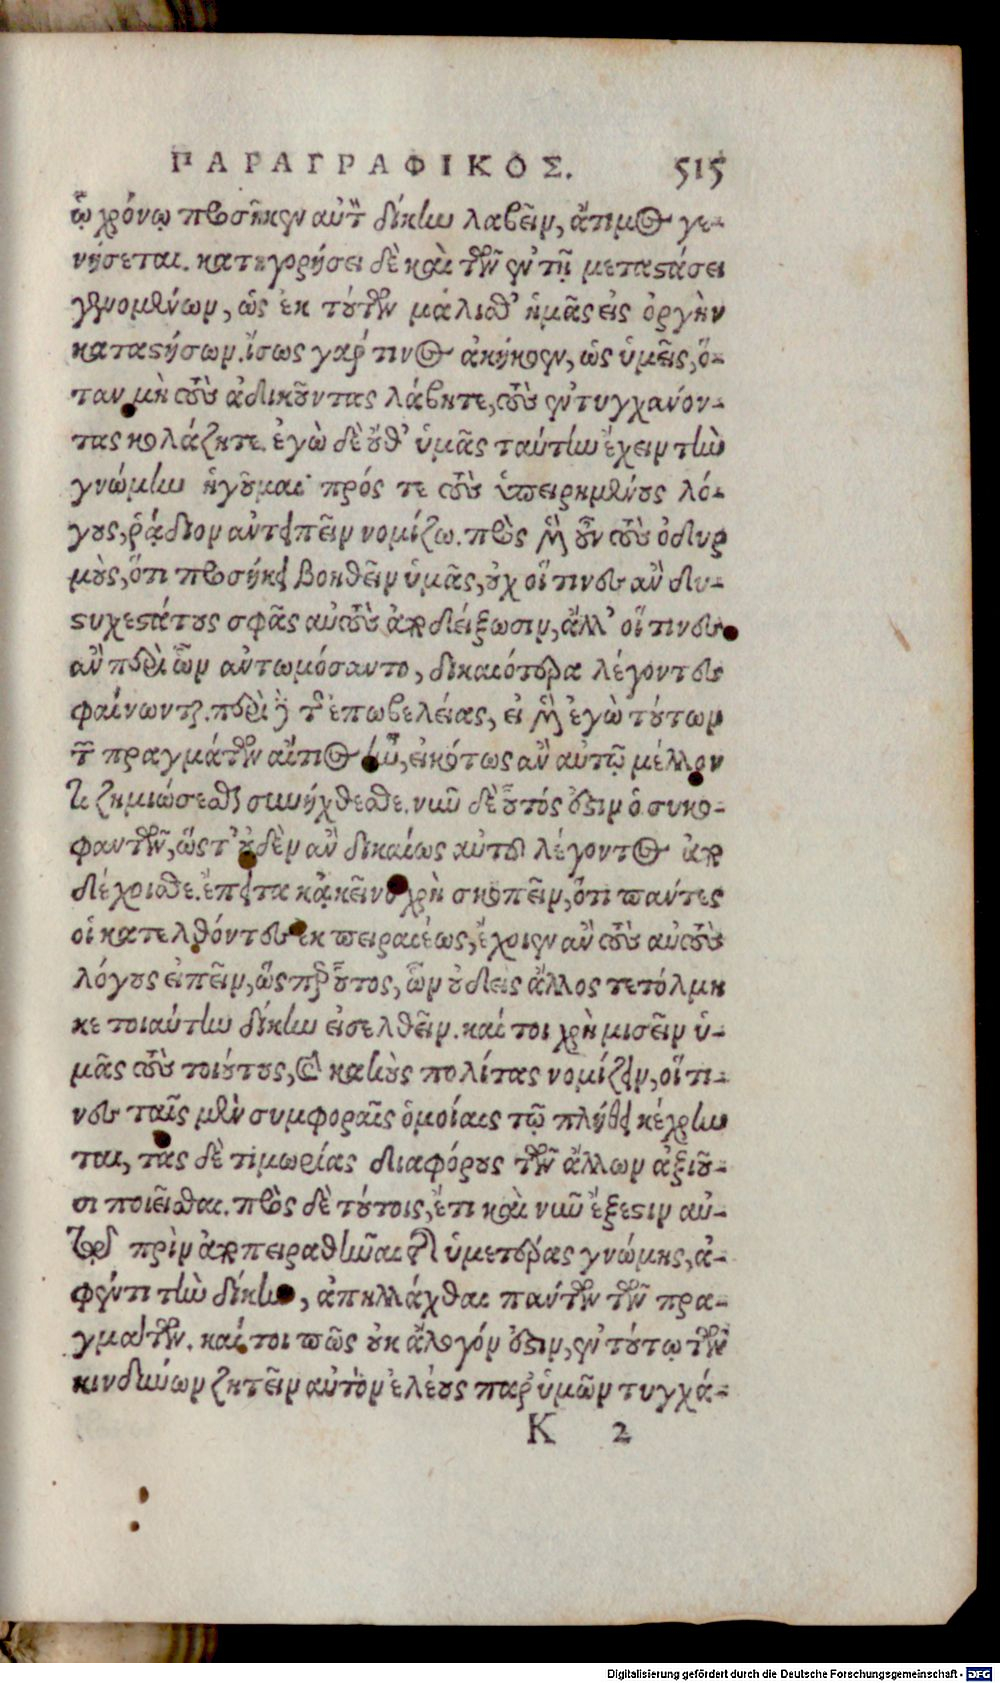 ΠΑΡΑΓΡΑΦΙΚΟΣ. 515
ᾧ χρόνῳ προσῆκεν αὐτὸν δίκην λαβεῖν, ἄτιμος γε-
νήσεται. κατηγορήσει δὲ καὶ τῶν ἐν τῇ μεταστάσει
γενομένων, ὡς ἐκ τούτων μάλισθ' ἡμᾶς εἰς ὀργὴν
καταστήσων. ἴσως γάρ τινος ἀκήκοεν, ὡς ὑμεῖς, ὅ-
ταν μὴ τοὺς ἀδικοῦντας λάβητε, τοὺς ἐντυγχάνον-
τας κολάζητε. ἐγὼ δὲ οὔθ' ὑμᾶς ταύτην ἔχειν τὴν
γνώμην ἡγοῦμαι πρός τε τοὺς ὑπειρημένους λό-
γους, ῥᾴδιον ἀντειπεῖν νομίζω. πρὸς μὲν οὖν τοὺς ὀδυρ
μοὺς, ὅτι προσήκει βοηθεῖν ὑμᾶς, οὐχ οἵτινες ἂν δυ-
στυχεστάτους σφᾶς αὐτοὺς ἀποδείξωσιν, ἀλλ' οἵτινες
ἂν περὶ ὧν ἀντωμόσαντο, δικαιότερα λέγοντες
φαίνωνται. περὶ δὲ τῆς ἐπωβελείας, εἰ μὲν ἐγὼ τούτων
τῶν πραγμάτων αἴτιος ἦν, εἰκότως ἂν αὐτῷ μέλλον
τι ζημιώσεσθαι συνήχθεσθε. νῦν δὲ οὗτός ἐστιν ὁ συκο-
φαντῶν, ὥστ' οὐδὲν ἂν δικαίως αὐτοῦ λέγοντος ἀπο
δέχοισθε. ἔπειτα κἀκεῖνο χρὴ σκοπεῖν, ὅτι πάντες
οἱ κατελθόντες ἐκ πειραιέως, ἔχοιεν ἂν τοὺς αὐτοὺς
λόγους εἰπεῖν, ὥσπερ οὗτος, ὧν οὐδεὶς ἄλλος τετόλμη
κε τοιαύτην δίκην εἰσελθεῖν. καί τοι χρὴ μισεῖν ὑ-
μᾶς τοὺς τοιούτους, καὶ κακοὺς πολίτας νομίζειν, οἵτι-
νες ταῖς μὲν συμφοραῖς ὁμοίαις τῷ πλήθει κέχρην
ται, τὰς δὲ τιμωρίας διαφόρους τῶν ἄλλων ἀξιοῦ-
σι ποιεῖσθαι. πρὸς δὲ τούτοις, ἔτι καὶ νῦν ἔξεστιν αὐ-
τῷ πρὶν ἀποπειραθῆναι τῆς ὑμετέρας γνώμης, ἀ-
φέντι τὴν δίκην, ἀπηλλάχθαι πάντων τῶν πρα-
γμάτων. καί τοι πῶς οὐκ ἄλογόν ἐστιν, ἐν τούτῳ τῶν
κινδύνων ζητεῖν αὐτὸν ἐλέους παρ' ὑμῶν τυγχά-
K 2
Digitalisierung gefördert durch die Deutsche Forschungsgemeinschaft - DFG